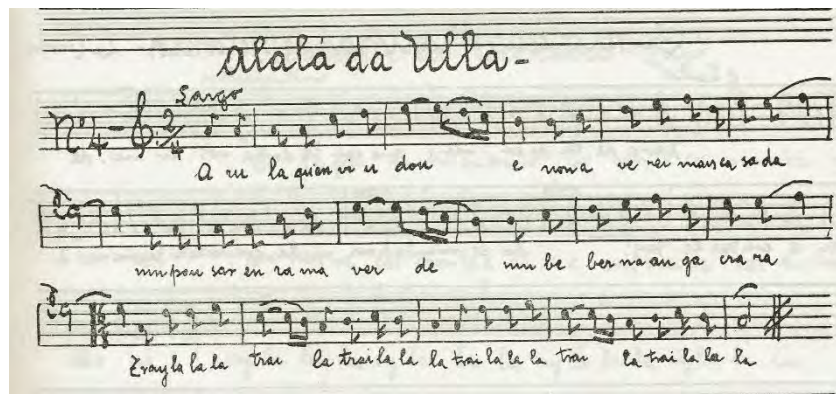 Alalá da Ulla-
Largo
Nº 4- 2/4
A ru la quen vi u dou e nona ve rei mais ca sada
nin pou sar en ra ma ver de nin be ber na au ga cra ra
Tray la la la trai la trai la la la trai la la la trai la trai la la la